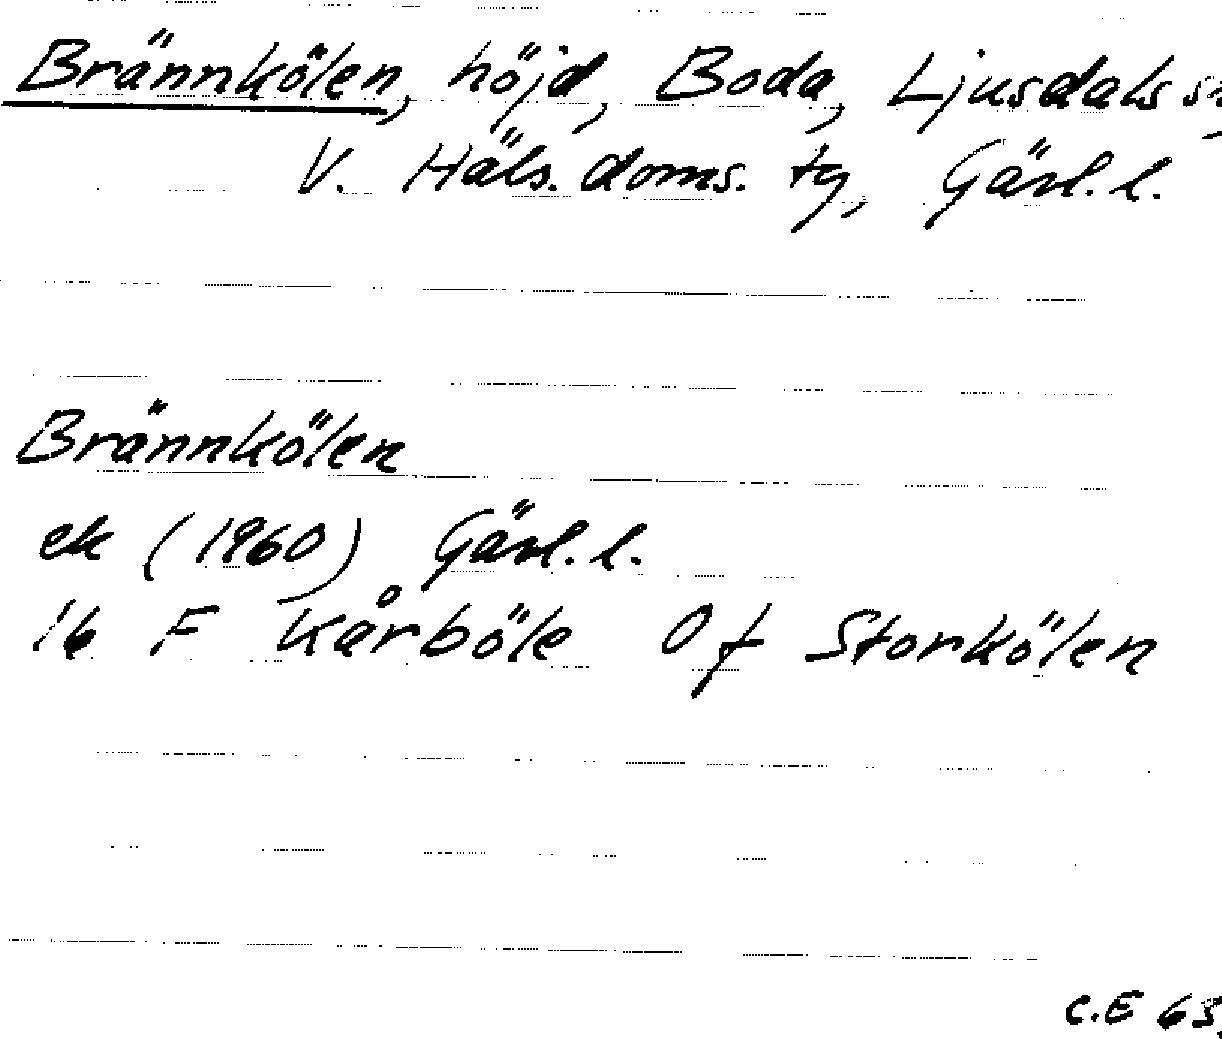 Brännkölen, höjd, Boda, Ljusdals sn,
V. Häls. doms. tg, Gävl. l.
Brännkölen
ek (1960) Gävl. l.
16 F Kårböle Of Storkölen
C.E 63.